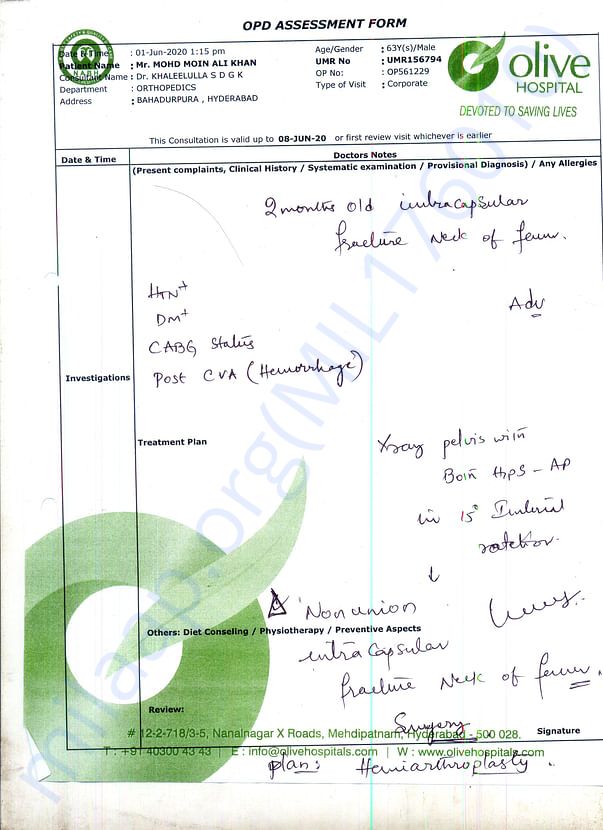 OPD ASSESSMENT FORM
Date & Time : 01-Jun-2020 1:15 pm
Patient Name : Mr. MOHD MOIN ALI KHAN
Consultant Name : Dr. KHALEELULLA S D G K
Department : ORTHOPEDICS
Address : BAHADURPURA , HYDERABAD
Age/Gender : 63Y(s)/Male
UMR No : UMR156794
OP No: : OP561229
Type of Visit : Corporate
olive
HOSPITAL
DEVOTED TO SAVING LIVES
NABH
This Consultation is valid up to 08-JUN-20 or first review visit whichever is earlier
Date & Time
Doctors Notes
(Present complaints, Clinical History / Systematic examination / Provisional Diagnosis) / Any Allergies
2 months old intracapsular
fracture Neck of femur.
HTN+
DM+
CABG Status
Post CVA (Hemorrhage)
Adv
Investigations
Treatment Plan
Xray pelvis with
Both Hips - AP
in 15° Internal
rotation.
↓
Δ Nonunion
Others: Diet Conseling / Physiotherapy / Preventive Aspects
intracapsular
fracture Neck of femur
Review:
Surgery
Signature
# 12-2-718/3-5, Nanalnagar X Roads, Mehdipatnam, Hyderabad - 500 028.
T : +91 40300 43 43 | E : info@olivehospitals.com | W : www.olivehospitals.com
plan: Hemiarthroplasty.
milaap.org(MIL176019)